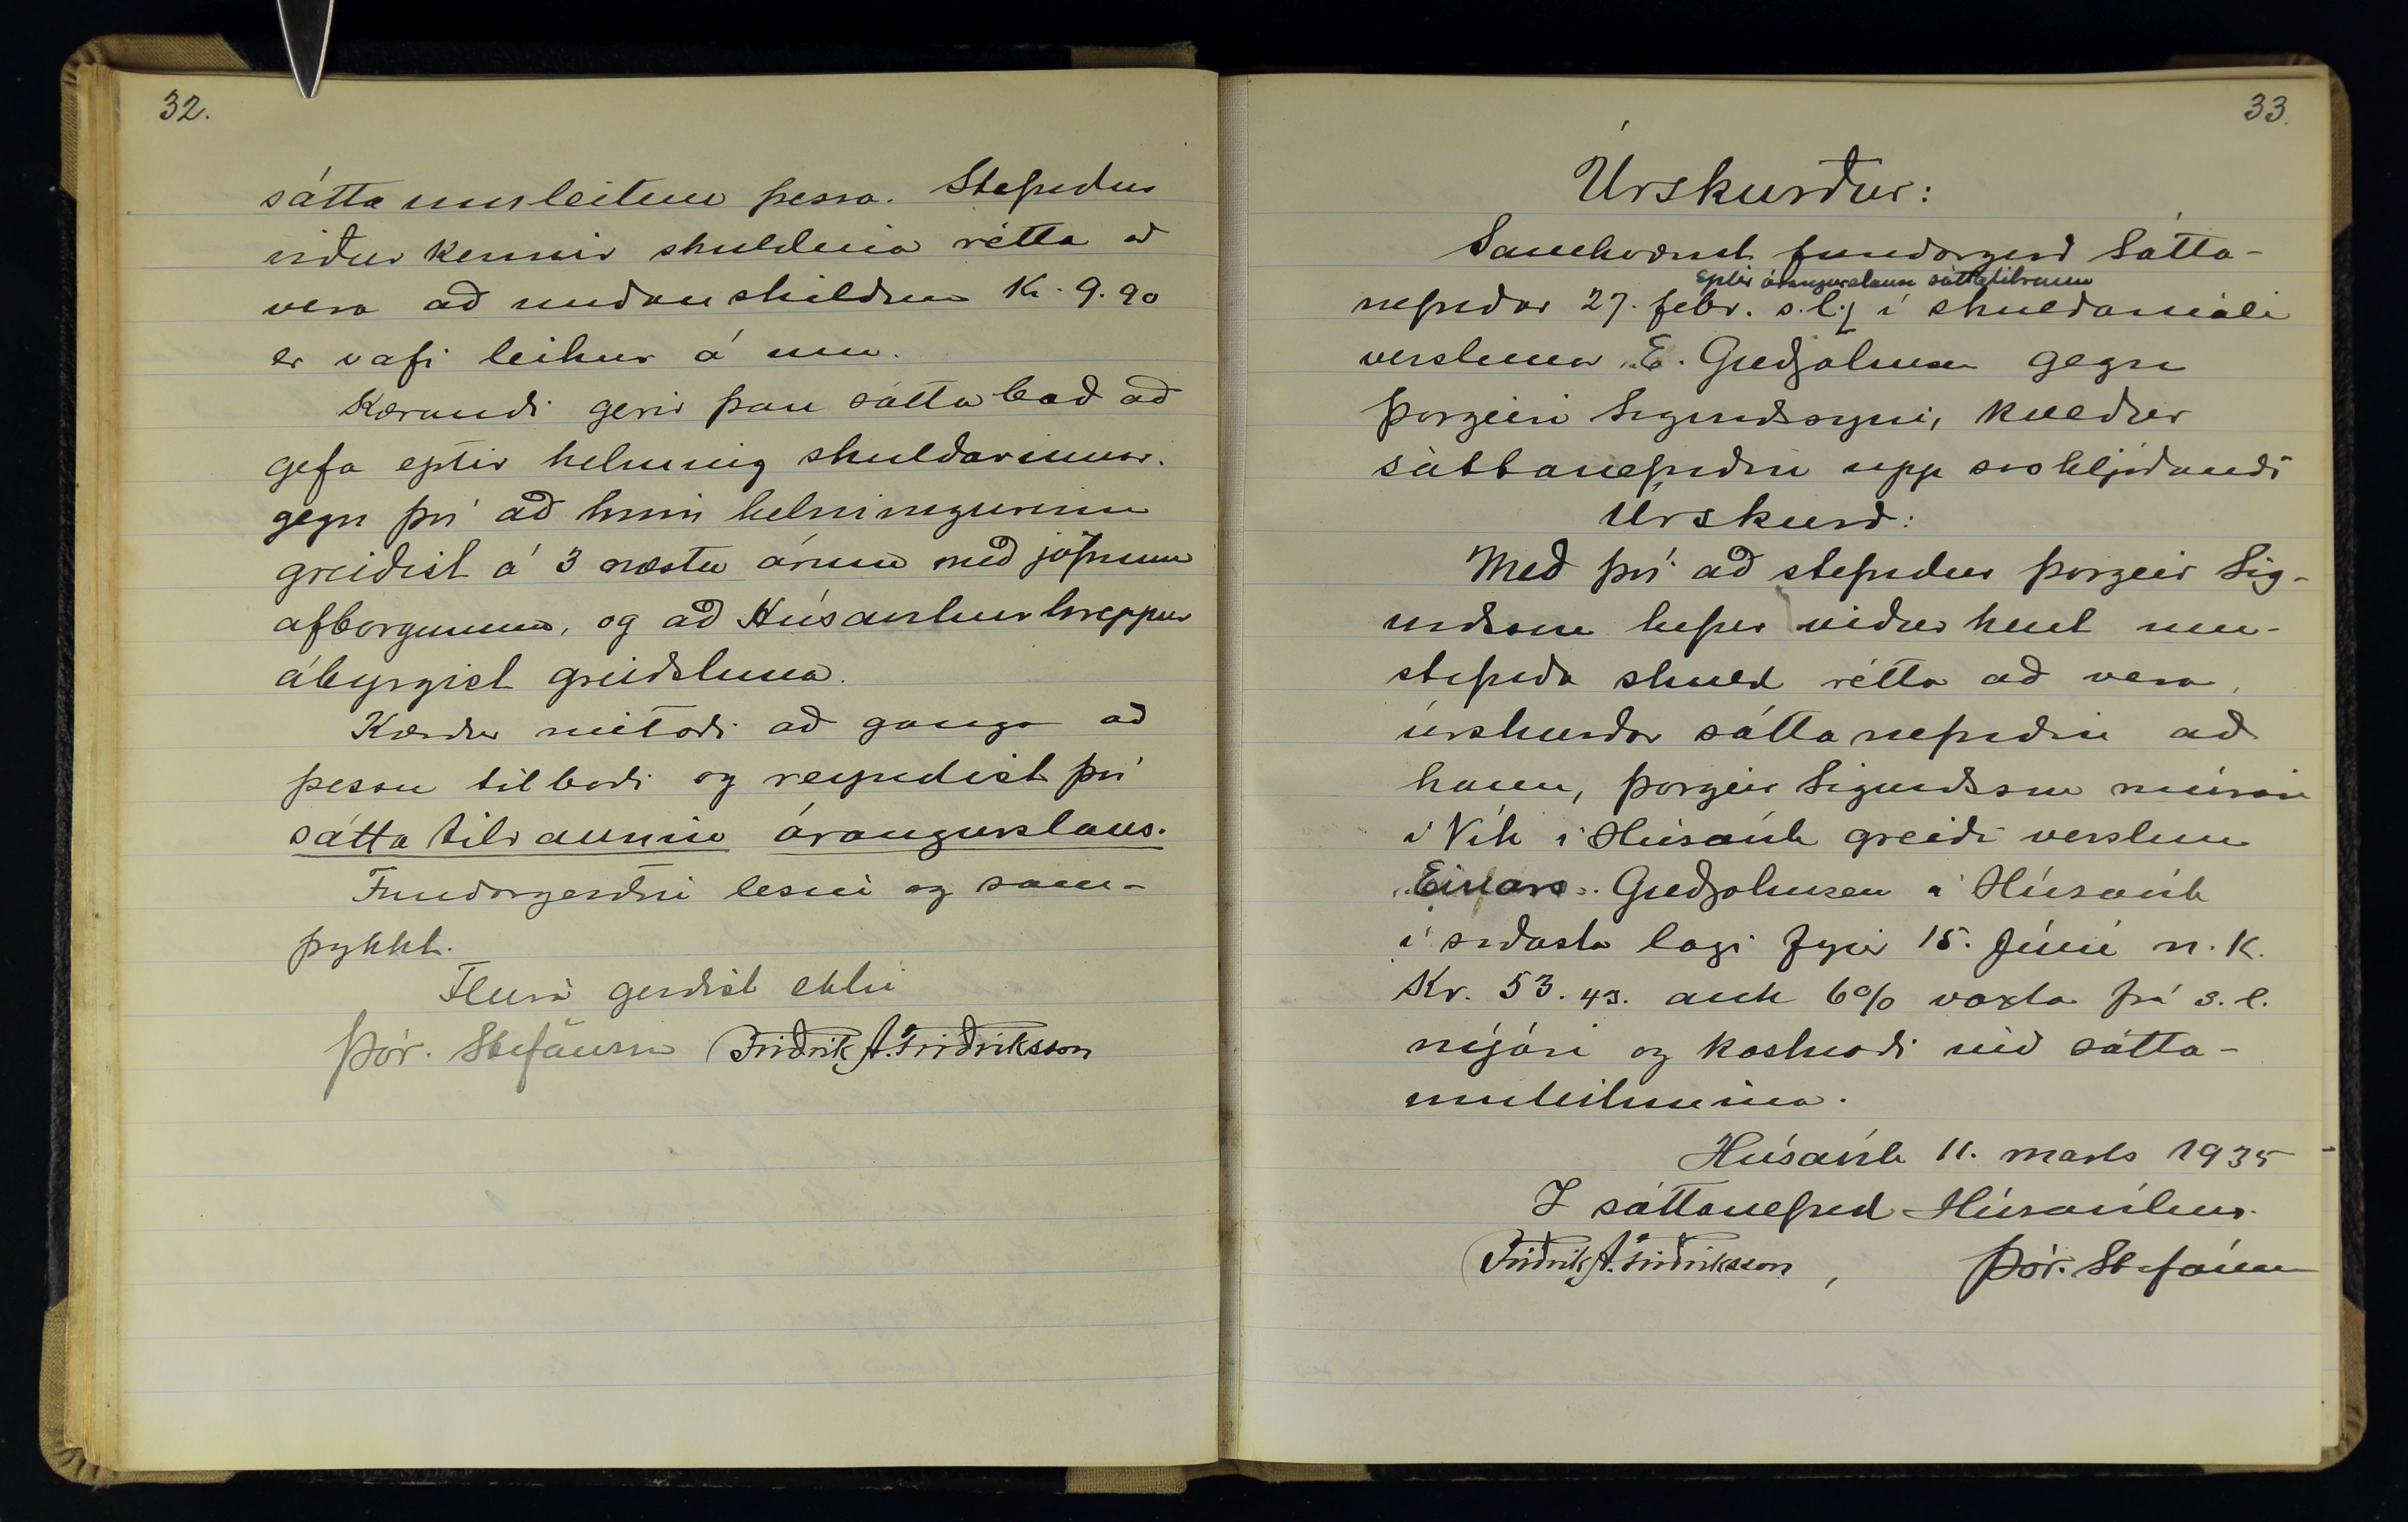 32.
sáttaumleitun þessa. Stefndur
viður kennir skuldina rétta að
vera að undanskildum Kr. 9.90
er vafi leikur á um.
Kærandi gerir það sáttaboð að
gefa eptir helming skuldarinnar.
gegn því að hinn helmingurinn
greiðist á 3 næstu árum með jöfnum
afborgunum, og að Húsavíkurhreppur
ábyrgist greiðsluna.
Kærður neitaði að ganga að
þessu tilboði og reyndist því
sátta tilraunin árangurslaus.
Fundargerðin lesin og sam-
þykkt.
Fleira gerðist ekki
Þór. Stefánsson Friðrik A. Friðriksson
33.
Úrskurður:
Samkvæmt fundargerð Sátta-
eptir árangurslausa sáttatilraun
nefndar 27. febr. s.l. í skuldamáli
verslunar „E. Guðjohnsen gegn
Þorgeiri Sigurðssyni, kveður
sáttanefndin upp svohljóðandi
Úrskurð:
Með því að stefndur Þorgeir Sig-
urðsson hefur viðurkent um-
stefnda skuld rétta að vera,
úrskurðar sáttanefndin að
hann, Þorgeir Sigurðsson múrari
í Vík í Húsavík greiði verslun
„Einars Guðjohnsen í Húsavík
í síðasta lagi fyrir 15. júní n.k.
Kr. 53.43. auk 6% vaxta frá s.l.
nýjári og kostnaði við sátta-
umleitunina.
Húsavík 11. mars 1935
Í sáttanefnd Húsavíkur.
Friðrik A. Friðriksson, Þór. Stefánsson